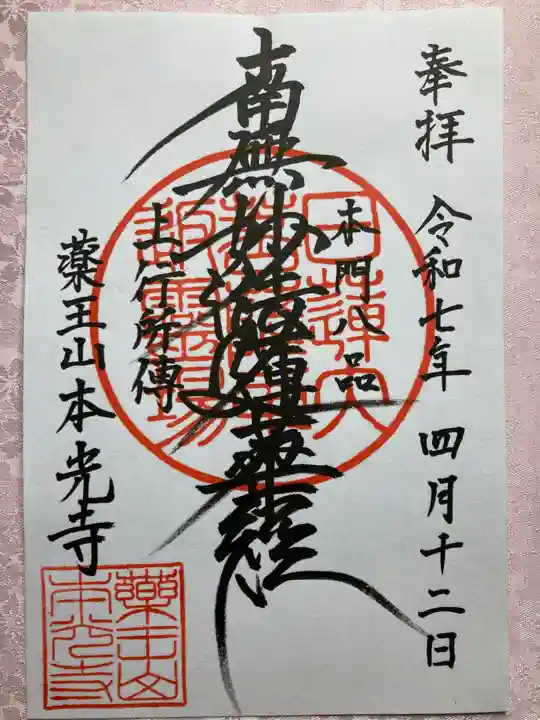 奉拝 令和七年 四月十二日
本門八品
南無妙法蓮華経
上行所傳
薬王山本光寺
薬王山
本光寺